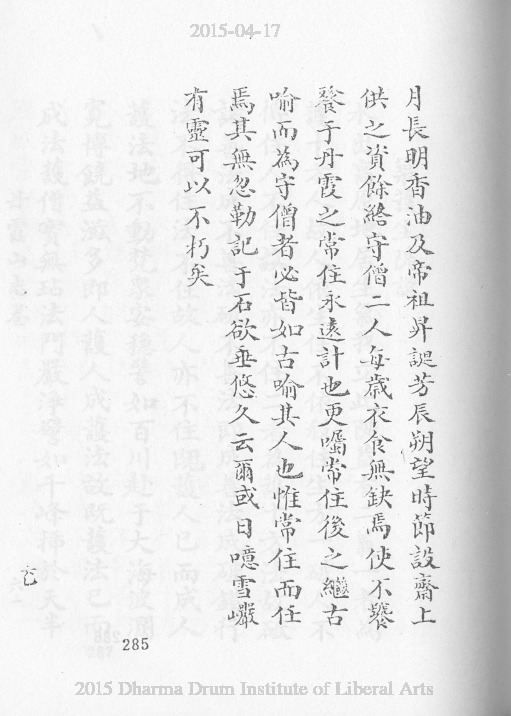 2015-04-17
月長明香油及帝祖昇誕芳辰朔望時節設齋上
供之資餘給守僧二人每歲衣食無缺焉使不饔
飱于丹霞之常住永遠計也更囑常住後之繼古
喻而為守僧者必皆如古喻其人也惟常住而任
焉其無忽勒記于石欲垂悠久云爾或曰噫雪巘
有靈可以不朽矣
285
2015 Dharma Drum Institute of Liberal Arts